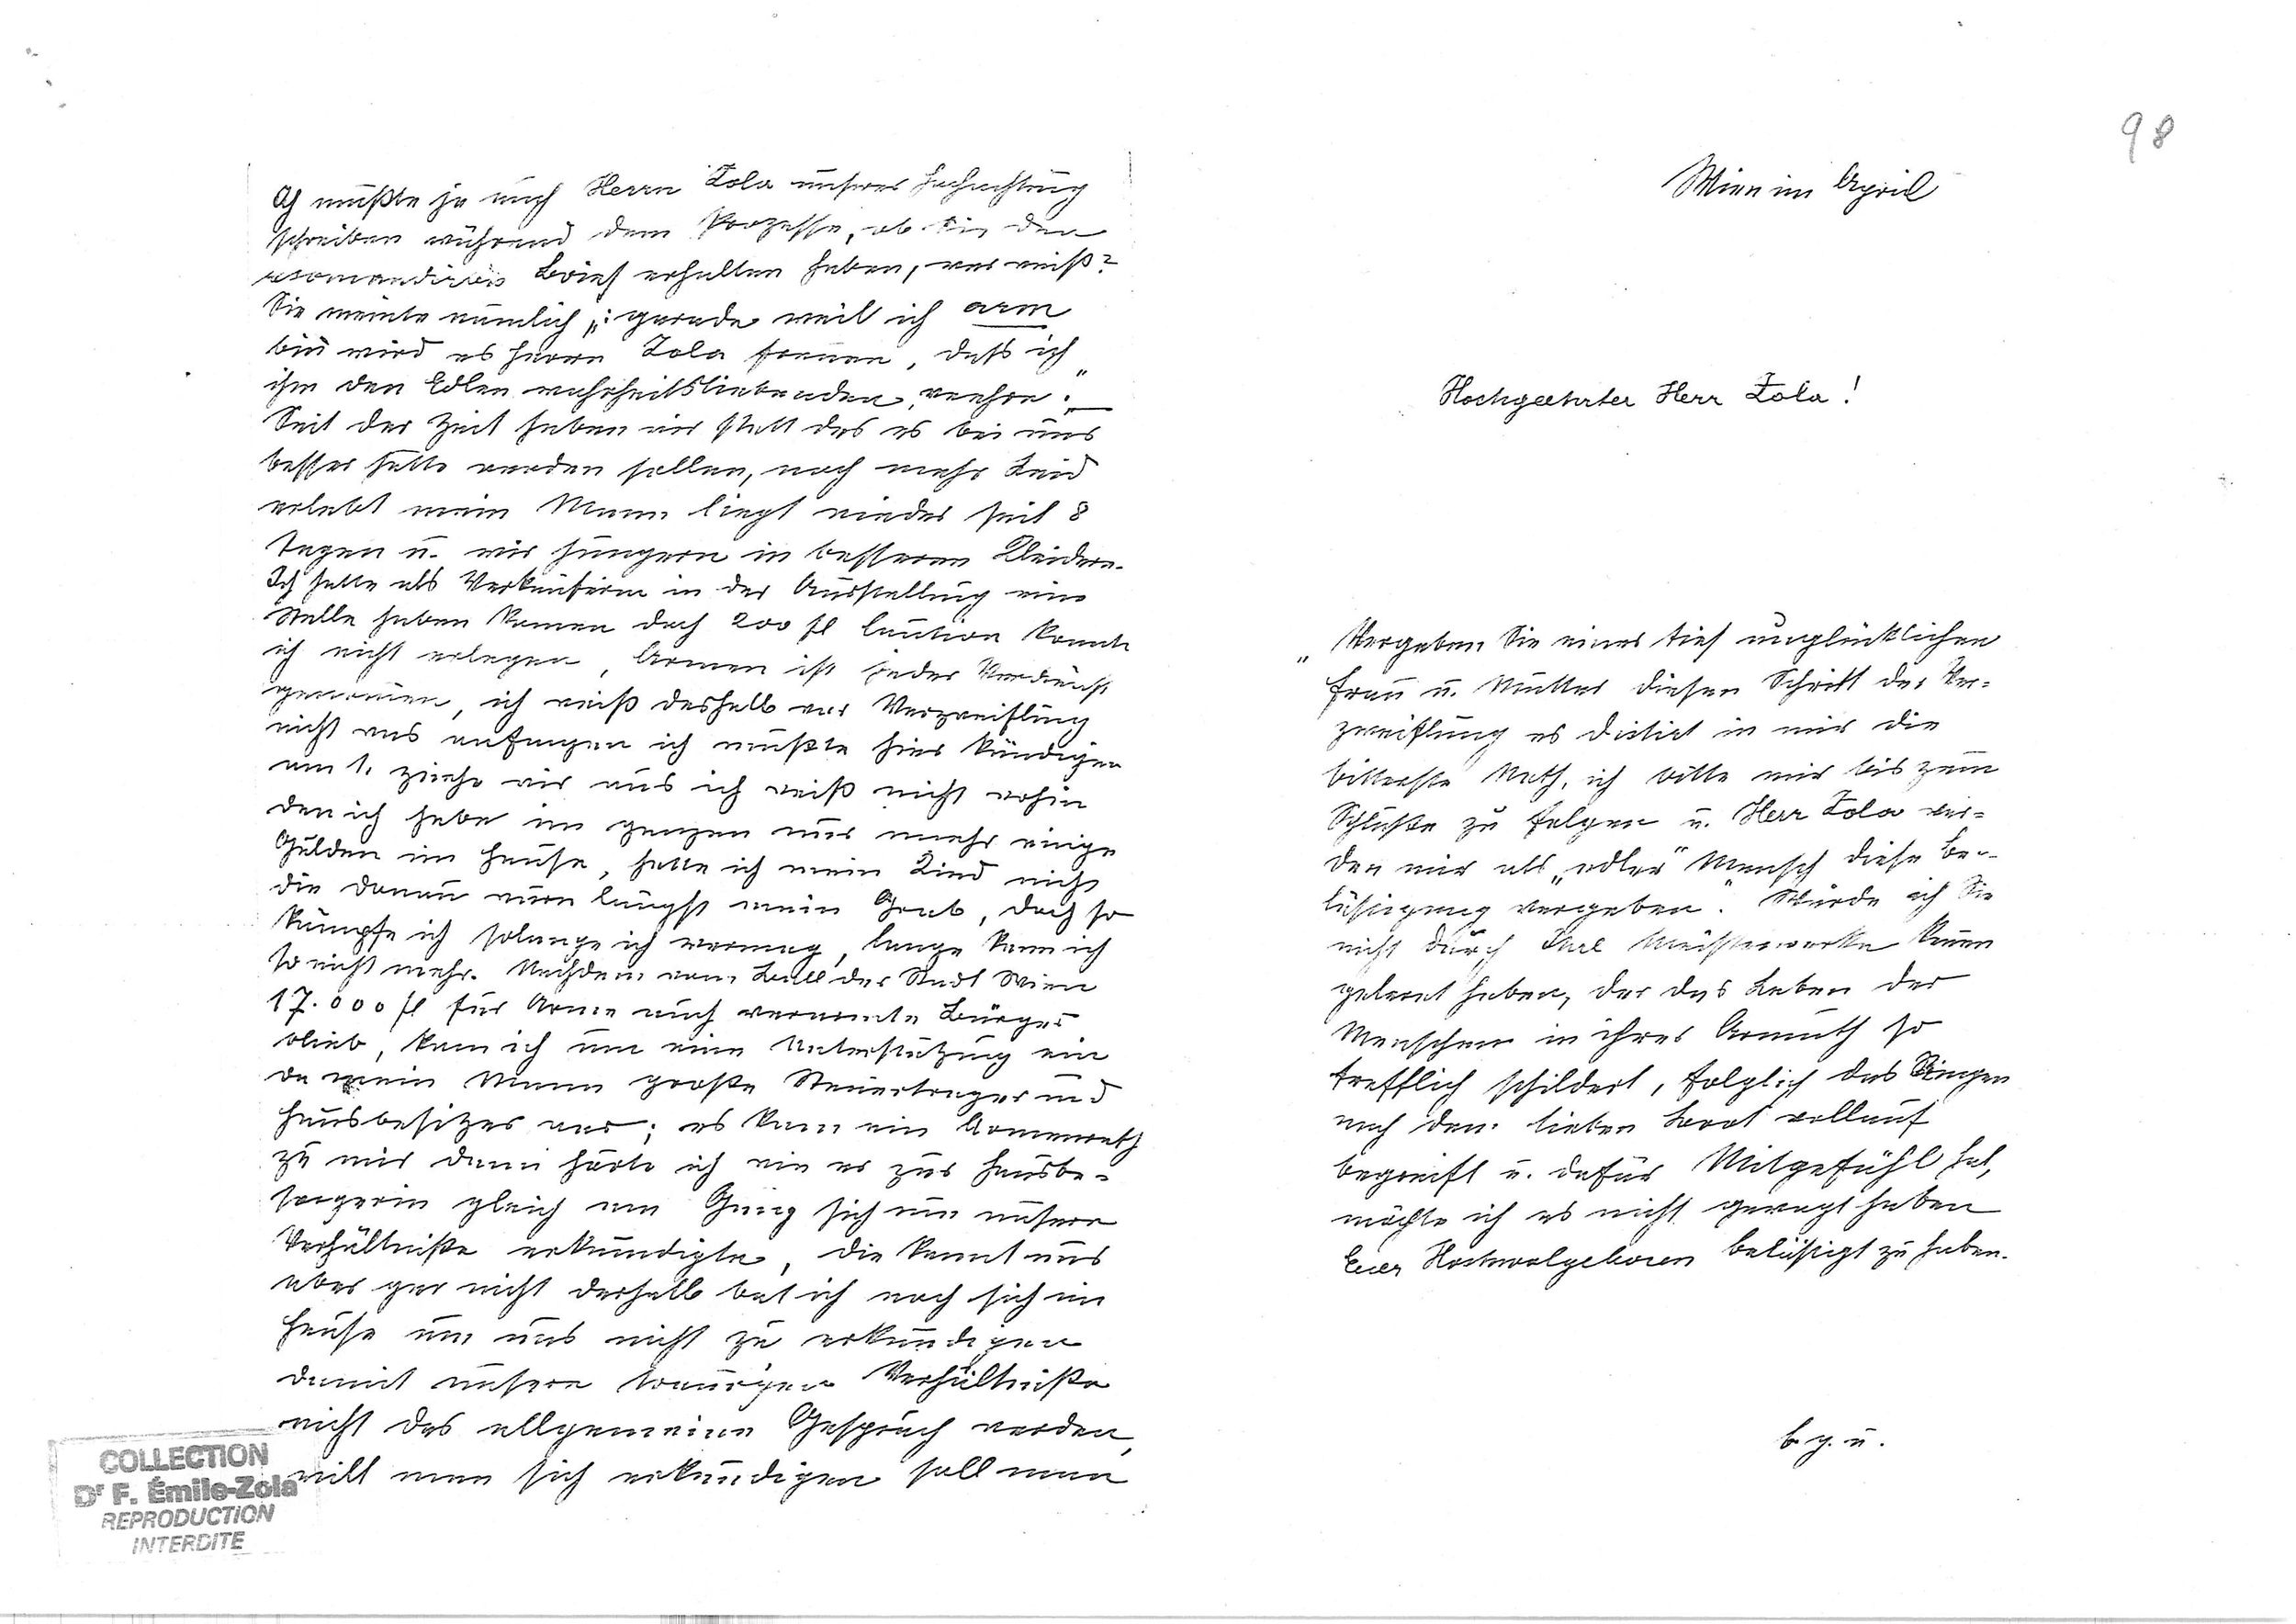 Ich mußte ja auch Herrn Zola unsere Hochachtung
schreiben während dem Prozesse, ob Sie den
recomandirten Brief erhalten haben, wer weiß?
Sie meinte nämlich „: gerade weil ich arm
bin wird es Herrn Zola freuen, daß ich
ihn den Edlen wahrheitsliebenden, verehre."
Seit der Zeit haben wir statt das es bei uns
besser hätte werden sollen, noch mehr Leid
erlebt mein Mann liegt wieder seit 8
Tagen u. wir hungern in besseren Kleidern.
Ich hätte als Verkäuferin in der Ausstellung eine
Stelle haben könen doch 200 fl Caution konnte
ich nicht erlegen, Armen ist jeder Verdienst
genomen, ich weiß deshalb vor Verzweiflung
nicht was anfangen ich mußte hier kündigen
am 1. ziehe wir aus ich weiß nicht wohin
den ich habe im ganzen nur mehr einige
Gulden im Hause, hätte ich mein Kind nicht
die Donau wäre längst mein Grab, doch so
kämpfe ich solange ich vermag, lange kann ich
so nicht mehr. Nachdem vom Ball der Stadt Wien
17.000 fl für Arme auch verarmte Bürger
blieb, kam ich um eine Unterstützung ein
da mein Mann große Steuertrager und
Hausbesitzer war; es kam ein Armenrath
zu mir dann hörte ich wie er zur Hausbe-
sorgerin gleich am Gang sich um unsere
Verhältniße erkundigte, die kennt uns
aber gar nicht deshalb bat ich noch sich im
Hause um uns nicht zu erkundigen
damit unsere traurigen Verhältniße
nicht das allgemeine Gespräch werden,
will man sich erkundigen soll man
COLLECTION
Dr F. Émile-Zola
REPRODUCTION
INTERDITE
98
Wien im April
Hochgeehrter Herr Zola!
„Vergeben Sie einer tief unglücklichen
Frau u. Mutter diesen Schritt der Ver-
zweiflung es dictirt in mir die
bitterste Noth, ich bitte mir bis zum
Schluße zu folgen u. Herr Zola wer-
den mir als „edler" Mensch diese Be-
lästigung vergeben." Würde ich Sie
nicht durch Ihre Meisterwerke kenen
gelernt haben, der das Leben der
Menschen in ihrer Armuth so
trefflich schildert, folglich das Ringen
nach dem lieben Brot vollauf
begreift u. dafür Mitgefühl hat,
möchte ich es nicht gewagt haben
Euer Hochwolgeboren belästigt zu haben.
b. g. u.